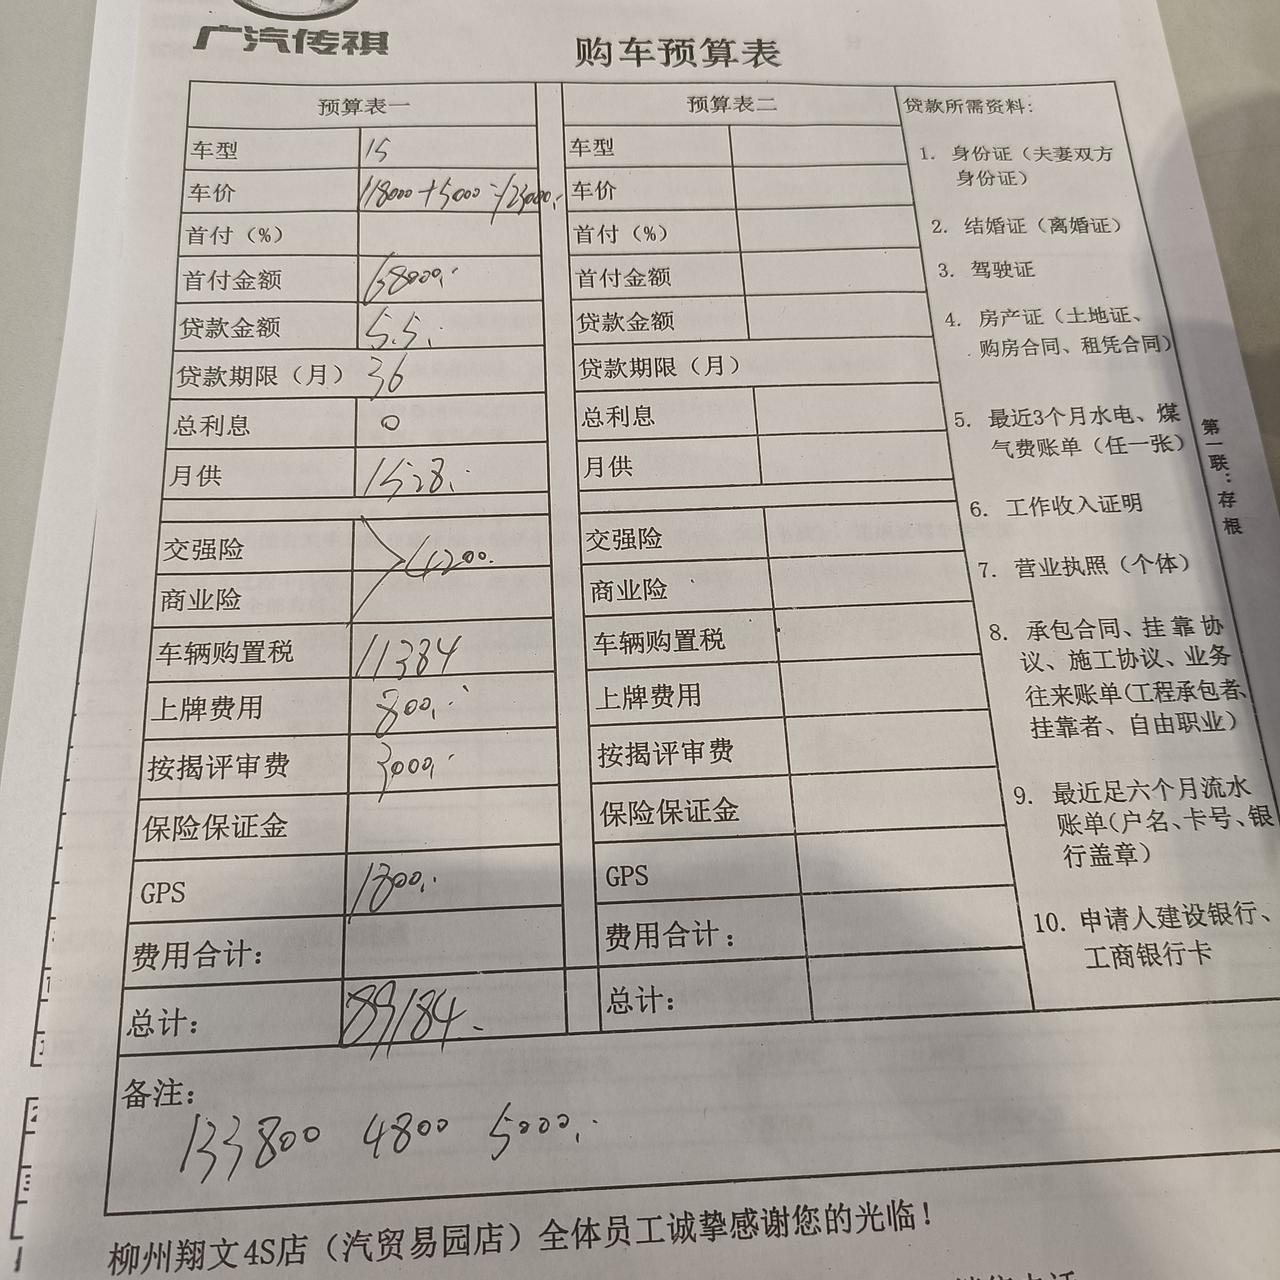 广汽传祺
购车预算表
预算表一
车型 15
车价 118000+5000=123000.-
首付（%）
首付金额 68000.-
贷款金额 5.5.
贷款期限（月） 36
总利息 0
月供 1528.
交强险
商业险
4200.
车辆购置税 11384
上牌费用 800.-
按揭评审费 3000.-
保险保证金
GPS 1800.-
费用合计：
总计： 89184.
预算表二
车型
车价
首付（%）
首付金额
贷款金额
贷款期限（月）
总利息
月供
交强险
商业险
车辆购置税
上牌费用
按揭评审费
保险保证金
GPS
费用合计：
总计：
贷款所需资料：
1. 身份证（夫妻双方
身份证）
2. 结婚证（离婚证）
3. 驾驶证
4. 房产证（土地证、
购房合同、租赁合同）
5. 最近3个月水电、煤
气费账单（任一张）
6. 工作收入证明
7. 营业执照（个体）
8. 承包合同、挂靠协
议、施工协议、业务
往来账单(工程承包者、
挂靠者、自由职业）
9. 最近足六个月流水
账单(户名、卡号、银
行盖章）
10. 申请人建设银行、
工商银行卡
第一联：存根
备注：
133800 4800 5000.-
柳州翔文4S店（汽贸易园店）全体员工诚挚感谢您的光临！